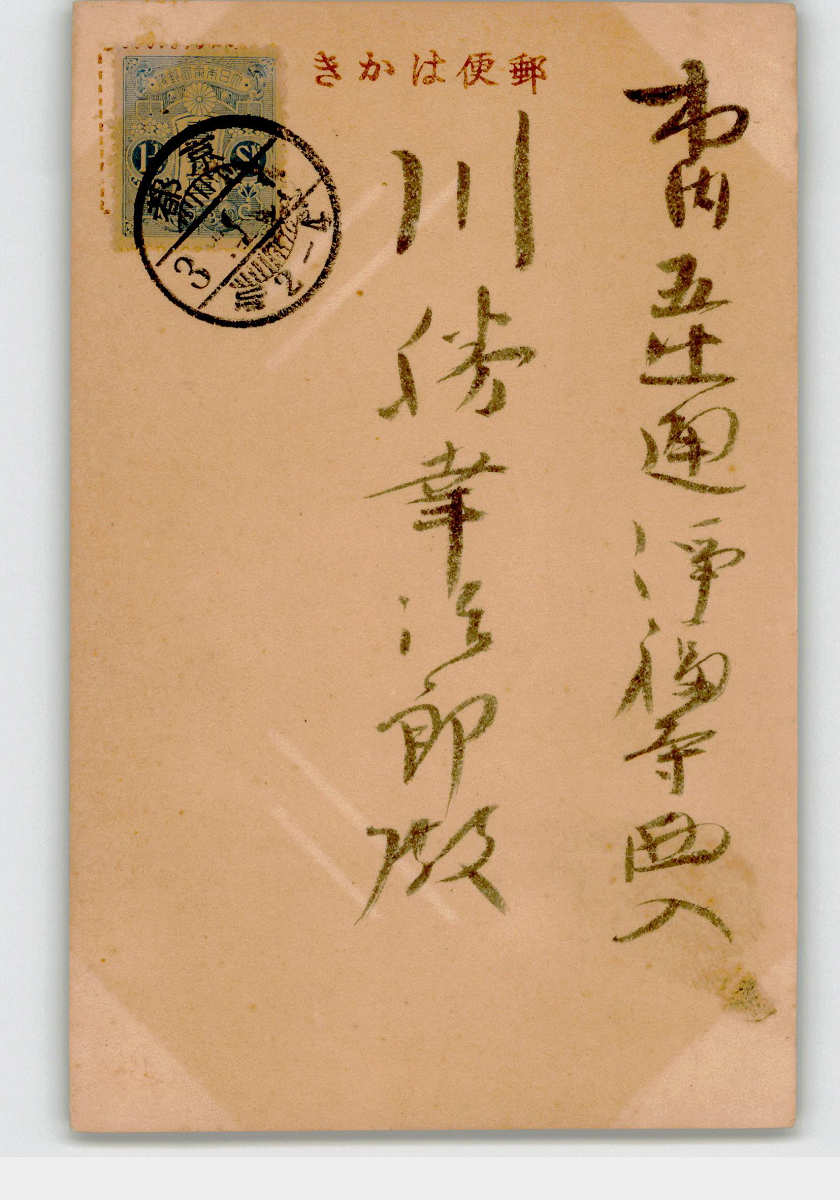 郵便はかき
市内五辻通浄福寺西入
川勝幸治郎殿
京都
3